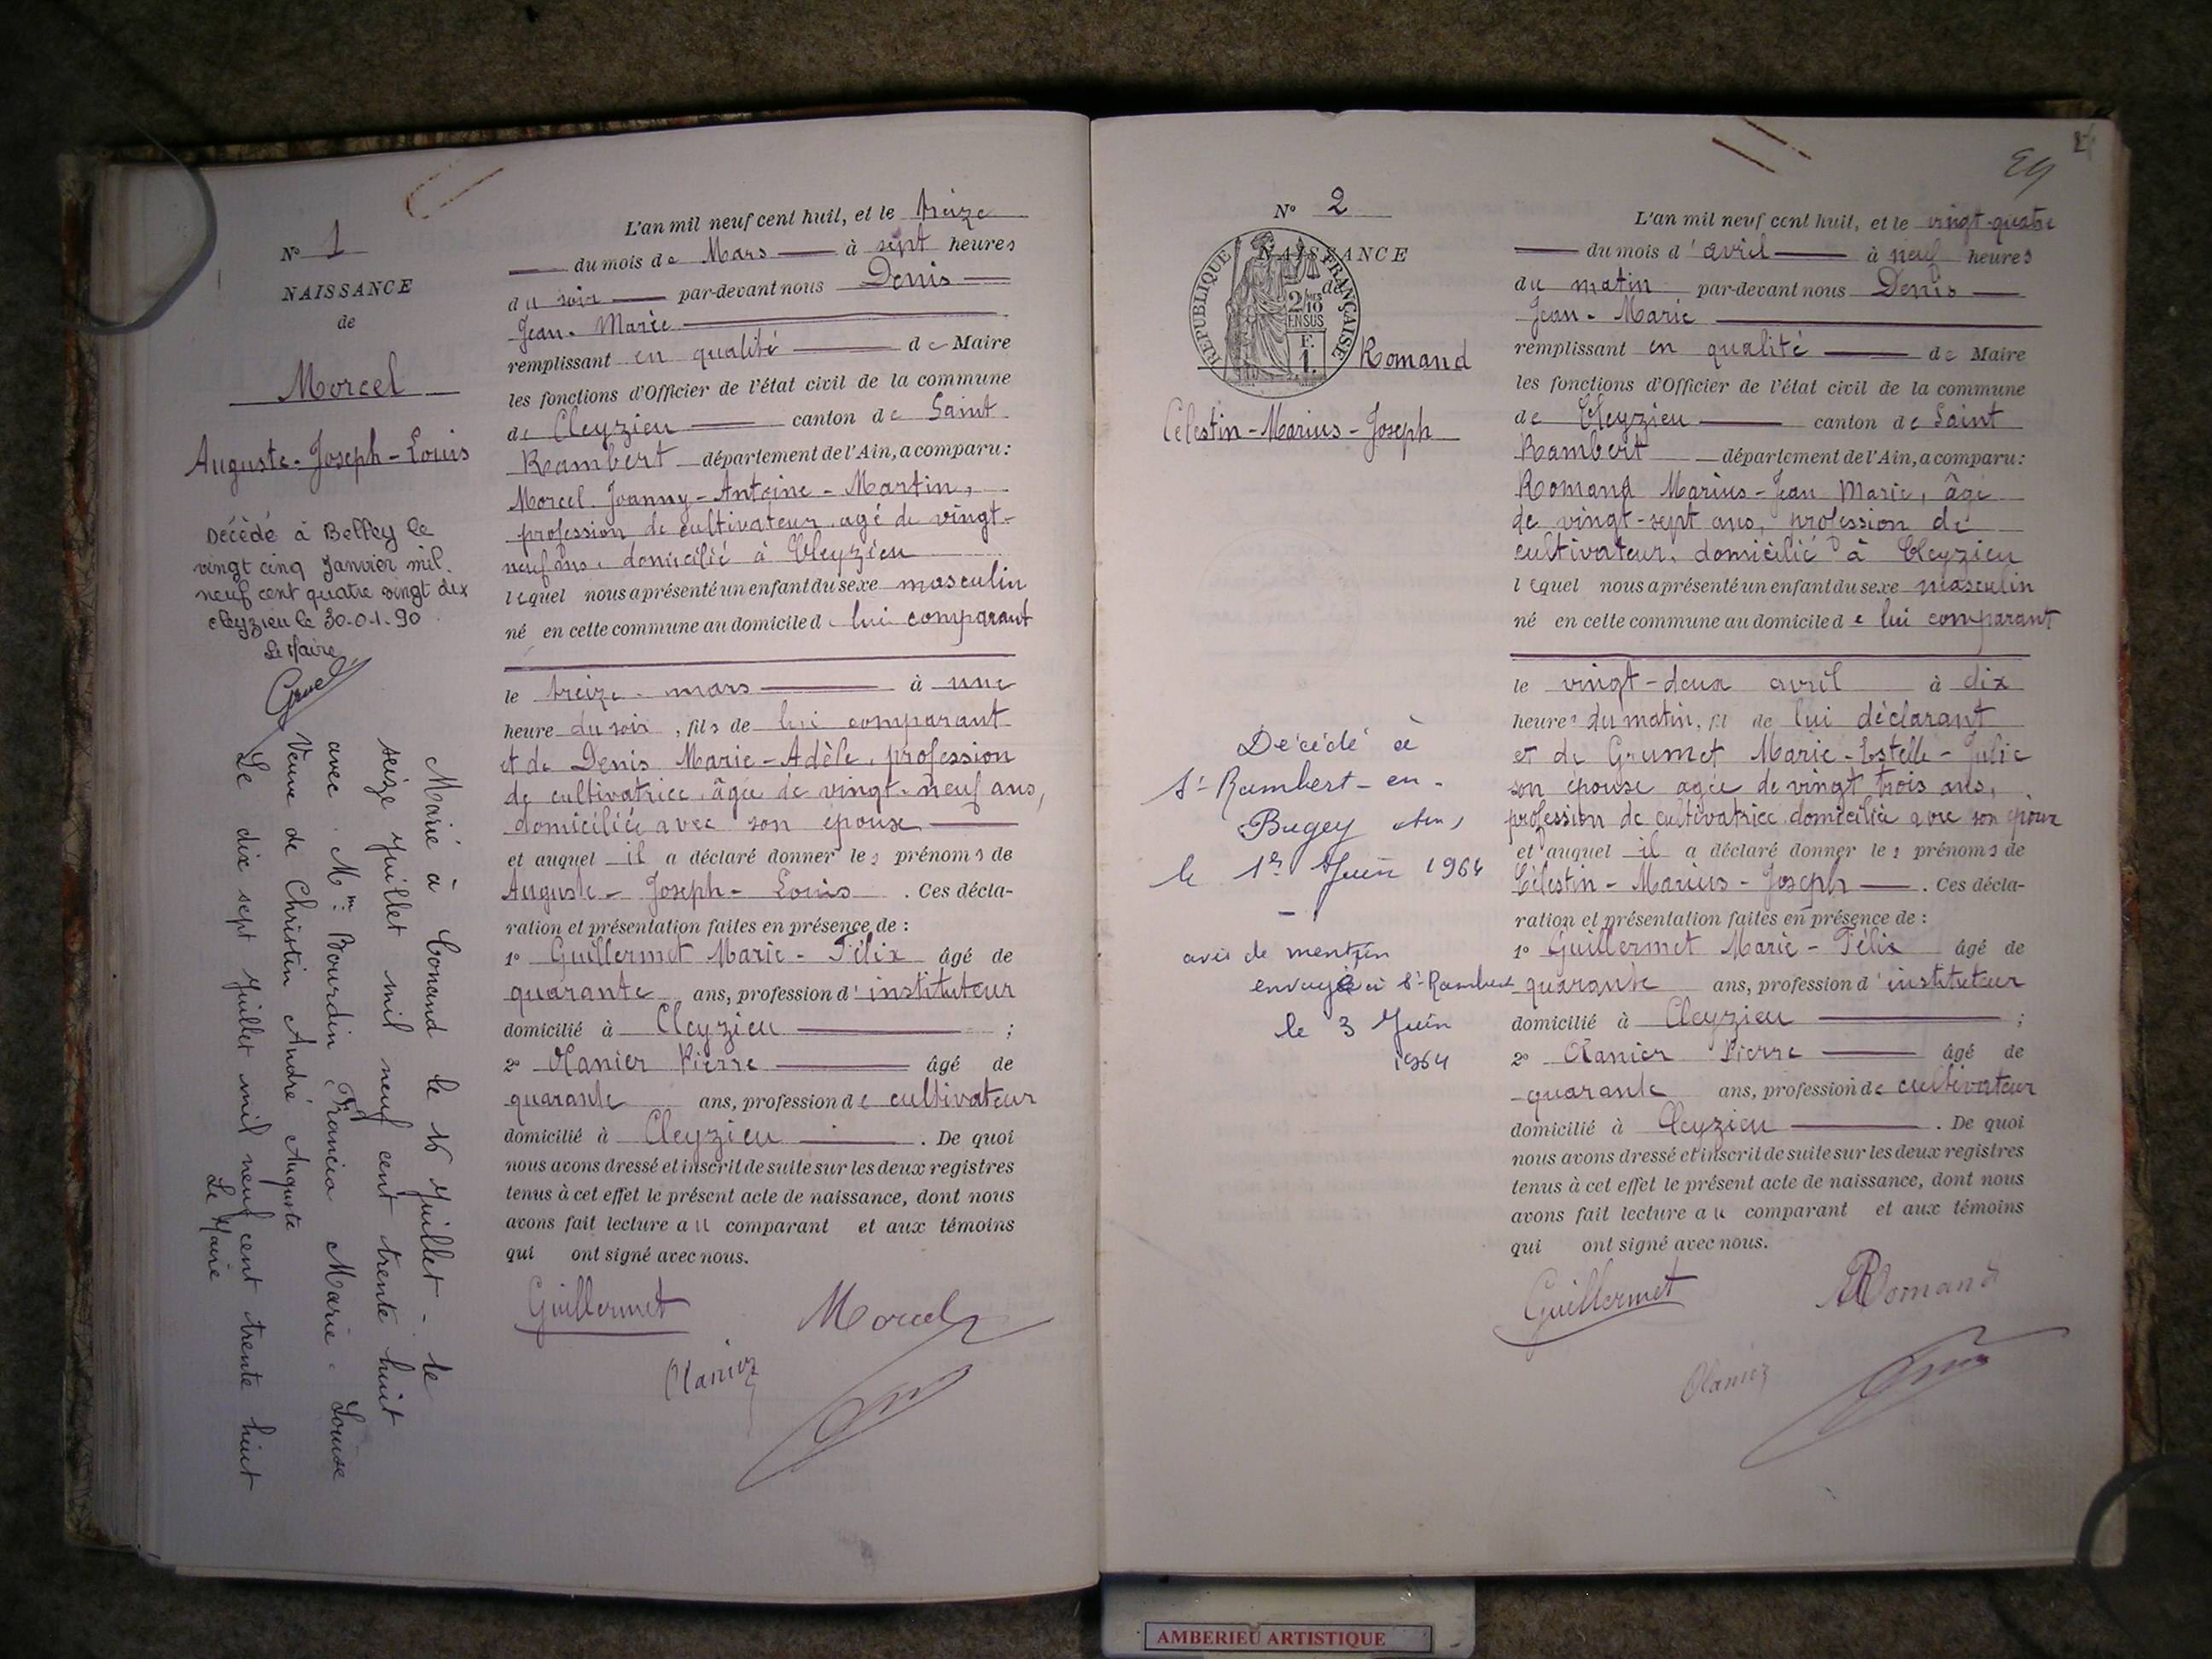 N° 1
NAISSANCE
de
Morcel
Auguste-Joseph-Louis
Décédé à Belley le
vingt cinq Janvier mil
neuf cent quatre vingt dix
cleyzieu le 30-0-1-90
Le Maire
Marié à Conand le 16 Juillet - le
seize Juillet mil neuf cent trente huit
avec Mme Bourdin Francia Marie-Louise
Veuve de Christin André Auguste
Le dix sept Juillet mil neuf cent trente huit
Le Maire
L'an mil neuf cent huit, et le treize
du mois de Mars à sept heures
du soir par-devant nous Denis
Jean-Marie
remplissant en qualité de Maire
les fonctions d'Officier de l'état civil de la commune
de Cleyzieu canton de Saint
Rambert département de l'Ain, a comparu:
Morcel Joanny-Antoine-Martin,
profession de cultivateur agé de vingt-
neuf ans, domicilié à Cleyzieu
lequel nous a présenté un enfant du sexe masculin
né en cette commune au domicile de lui comparant
le treize mars à une
heure du soir, fils de lui comparant
et de Denis Marie-Adèle, profession
de cultivatrice, âgée de vingt-neuf ans,
domiciliée avec son époux
et auquel il a déclaré donner les prénoms de
Auguste-Joseph-Louis. Ces décla-
ration et présentation faites en présence de:
1° Guillermet Marie-Félix âgé de
quarante ans, profession d'instituteur
domicilié à Cleyzieu ;
2° Olanier Pierre âgé de
quarante ans, profession de cultivateur
domicilié à Cleyzieu. De quoi
nous avons dressé et inscrit de suite sur les deux registres
tenus à cet effet le présent acte de naissance, dont nous
avons fait lecture au comparant et aux témoins
qui ont signé avec nous.
Guillermet Morcel
Olanier
N° 2
NAISSANCE
de
REPUBLIQUE FRANÇAISE
2/10
EN SUS
F.
1.
Romand
Célestin-Marius-Joseph
Décédé à
St Rambert-en-
Bugey (Ain)
le 1er Juin 1964
avis de mention
envoyé à St-Rambert
le 3 Juin
1964
29
L'an mil neuf cent huit, et le vingt-quatre
du mois d'avril à neuf heures
du matin par-devant nous Denis
Jean-Marie
remplissant en qualité de Maire
les fonctions d'Officier de l'état civil de la commune
de Cleyzieu canton de Saint
Rambert département de l'Ain, a comparu:
Romand Marius-Jean Marie, âgé
de vingt-sept ans, profession de
cultivateur, domicilié à Cleyzieu
lequel nous a présenté un enfant du sexe masculin
né en cette commune au domicile de lui comparant
le vingt-deux avril à dix
heures du matin, fil de lui déclarant
et de Grumet Marie-Estelle-Julie
son épouse agée de vingt trois ans,
profession de cultivatrice domiciliée avec son époux
et auquel il a déclaré donner les prénoms de
Célestin-Marius-Joseph. Ces décla-
ration et présentation faites en présence de:
1° Guillermet Marie-Félix âgé de
quarante ans, profession d'instituteur
domicilié à Cleyzieu ;
2° Olanier Pierre âgé de
quarante ans, profession de cultivateur
domicilié à Cleyzieu. De quoi
nous avons dressé et inscrit de suite sur les deux registres
tenus à cet effet le présent acte de naissance, dont nous
avons fait lecture au comparant et aux témoins
qui ont signé avec nous.
Guillermet Romand
Olanier
AMBERIEU ARTISTIQUE